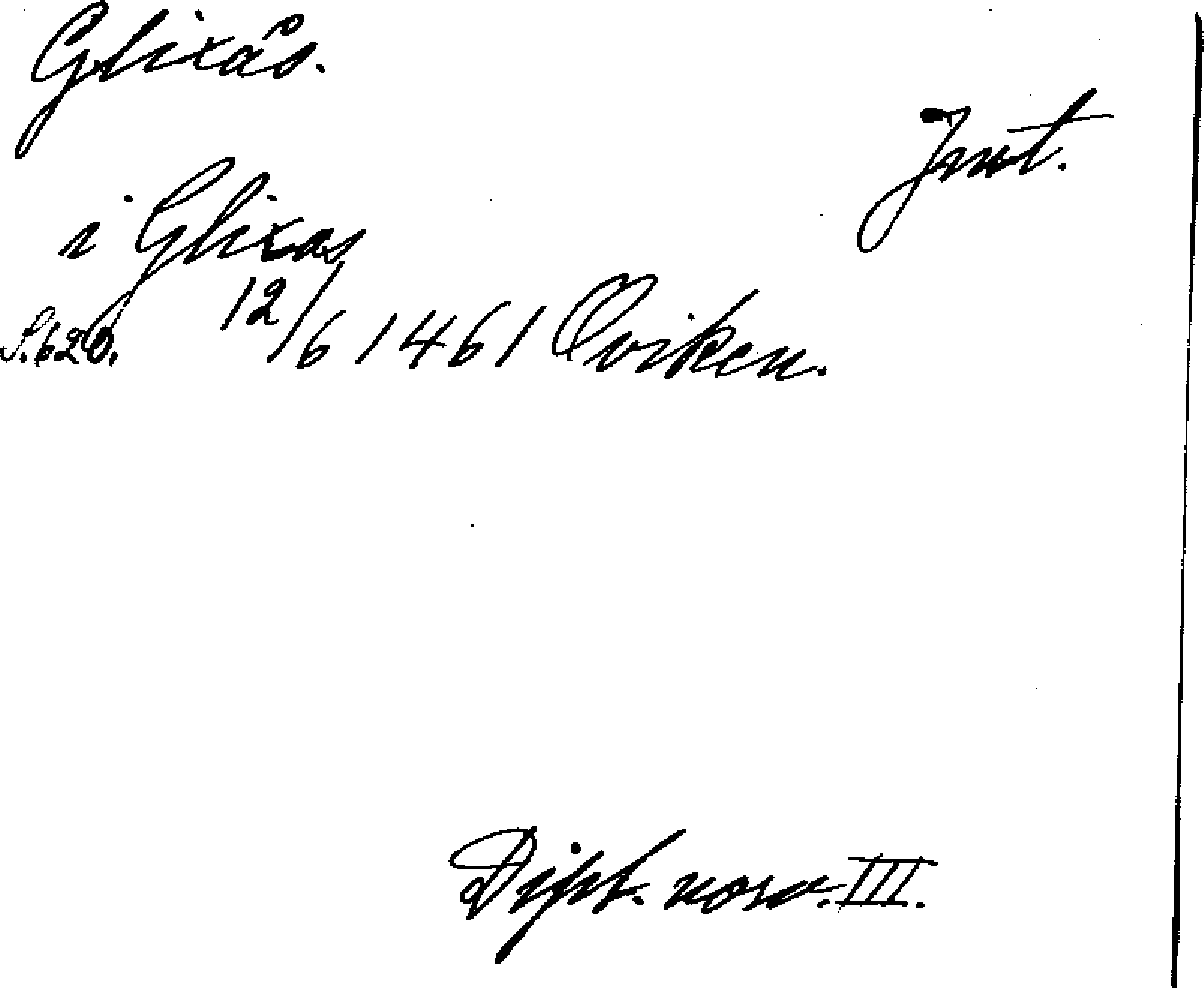 Glixås.
Jmt.
i Glixas
S. 620. 12/6 1461 Oviken.
Dipl. norv. III.